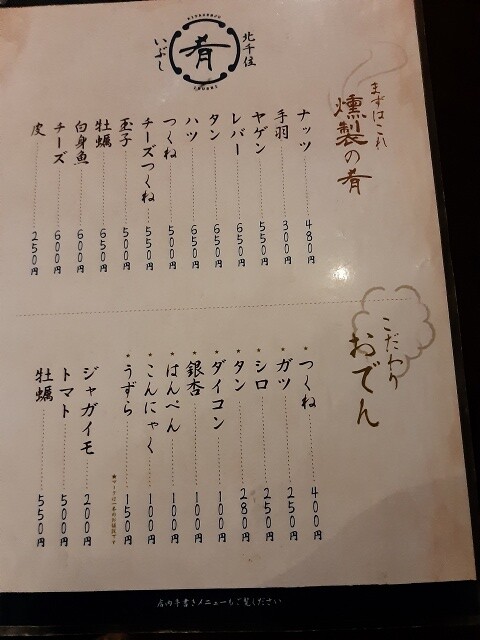 KITASENJU
北千住
肴
いぶし
IBUSHI
まずはこれ
燻製の肴
ナッツ 480円
手羽 300円
ヤゲン 550円
レバー 650円
タン 650円
ハツ 650円
つくね 500円
チーズつくね 550円
玉子 500円
牡蠣 650円
白身魚 600円
チーズ 600円
皮 250円
こだわり
おでん
★つくね 400円
★ガツ 250円
★シロ 250円
★タン 280円
★ダイコン 100円
★銀杏 100円
★はんぺん 100円
★こんにゃく 100円
★うずら 150円
★マークは一本のお値段です
ジャガイモ 200円
トマト 500円
牡蠣 550円
店内手書きメニューもご覧ください